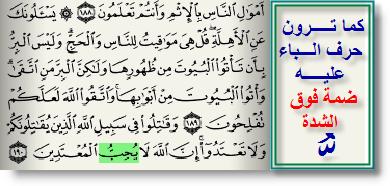 أَمْوَٰلِ ٱلنَّاسِ بِٱلْإِثْمِ وَأَنتُمْ تَعْلَمُونَ ١٨٨ ۞ يَسْـَٔلُونَكَ
عَنِ ٱلْأَهِلَّةِ ۖ قُلْ هِىَ مَوَٰقِيتُ لِلنَّاسِ وَٱلْحَجِّ ۗ وَلَيْسَ ٱلْبِرُّ
بِأَن تَأْتُوا۟ ٱلْبُيُوتَ مِن ظُهُورِهَا وَلَٰكِنَّ ٱلْبِرَّ مَنِ ٱتَّقَىٰ ۗ
وَأْتُوا۟ ٱلْبُيُوتَ مِنْ أَبْوَٰبِهَا ۚ وَٱتَّقُوا۟ ٱللَّهَ لَعَلَّكُمْ
تُفْلِحُونَ ١٨٩ وَقَٰتِلُوا۟ فِى سَبِيلِ ٱللَّهِ ٱلَّذِينَ يُقَٰتِلُونَكُمْ
وَلَا تَعْتَدُوٓا۟ ۚ إِنَّ ٱللَّهَ لَا يُحِبُّ ٱلْمُعْتَدِينَ ١٩٠
كما ترون
حرف الباء
عليه
ضمة فوق
الشدة
ـُّ